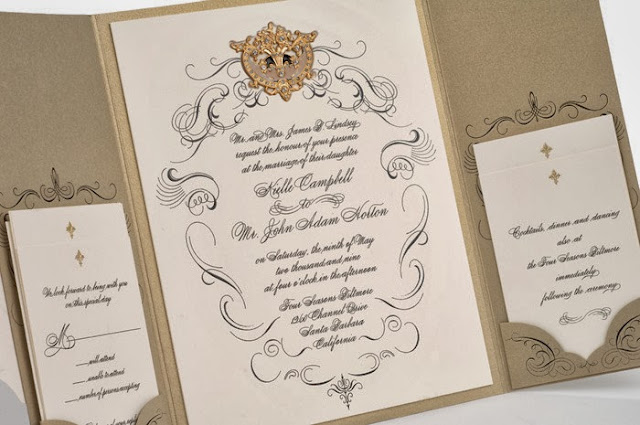 We look forward to being with you
on this special day.
M
will attend
unable to attend
number of persons accepting
Mr. and Mrs. James B. Lindsey
request the honour of your presence
at the marriage of their daughter
Kielle Campbell
to
Mr. John Adam Norton
on Saturday, the ninth of May
two thousand and nine
at four o'clock in the afternoon
Four Seasons Biltmore
1260 Channel Drive
Santa Barbara
California
Cocktails, dinner and dancing
also at
the Four Seasons Biltmore
immediately
following the ceremony